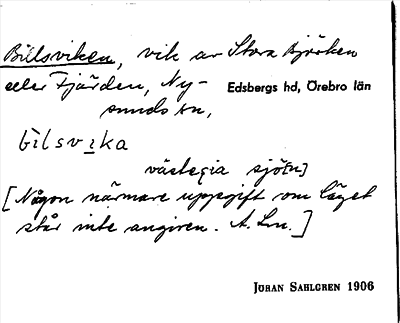 Billsviken, vik av Stora Björken
eller Fjärden, Ny-
Edsbergs hd, Örebro län
sunds sn,
bilsvika
västegia sjöɛn]
[Någon närmare uppgift om läget
står inte angiven. A. Lm.]
JOHAN SAHLGREN 1906